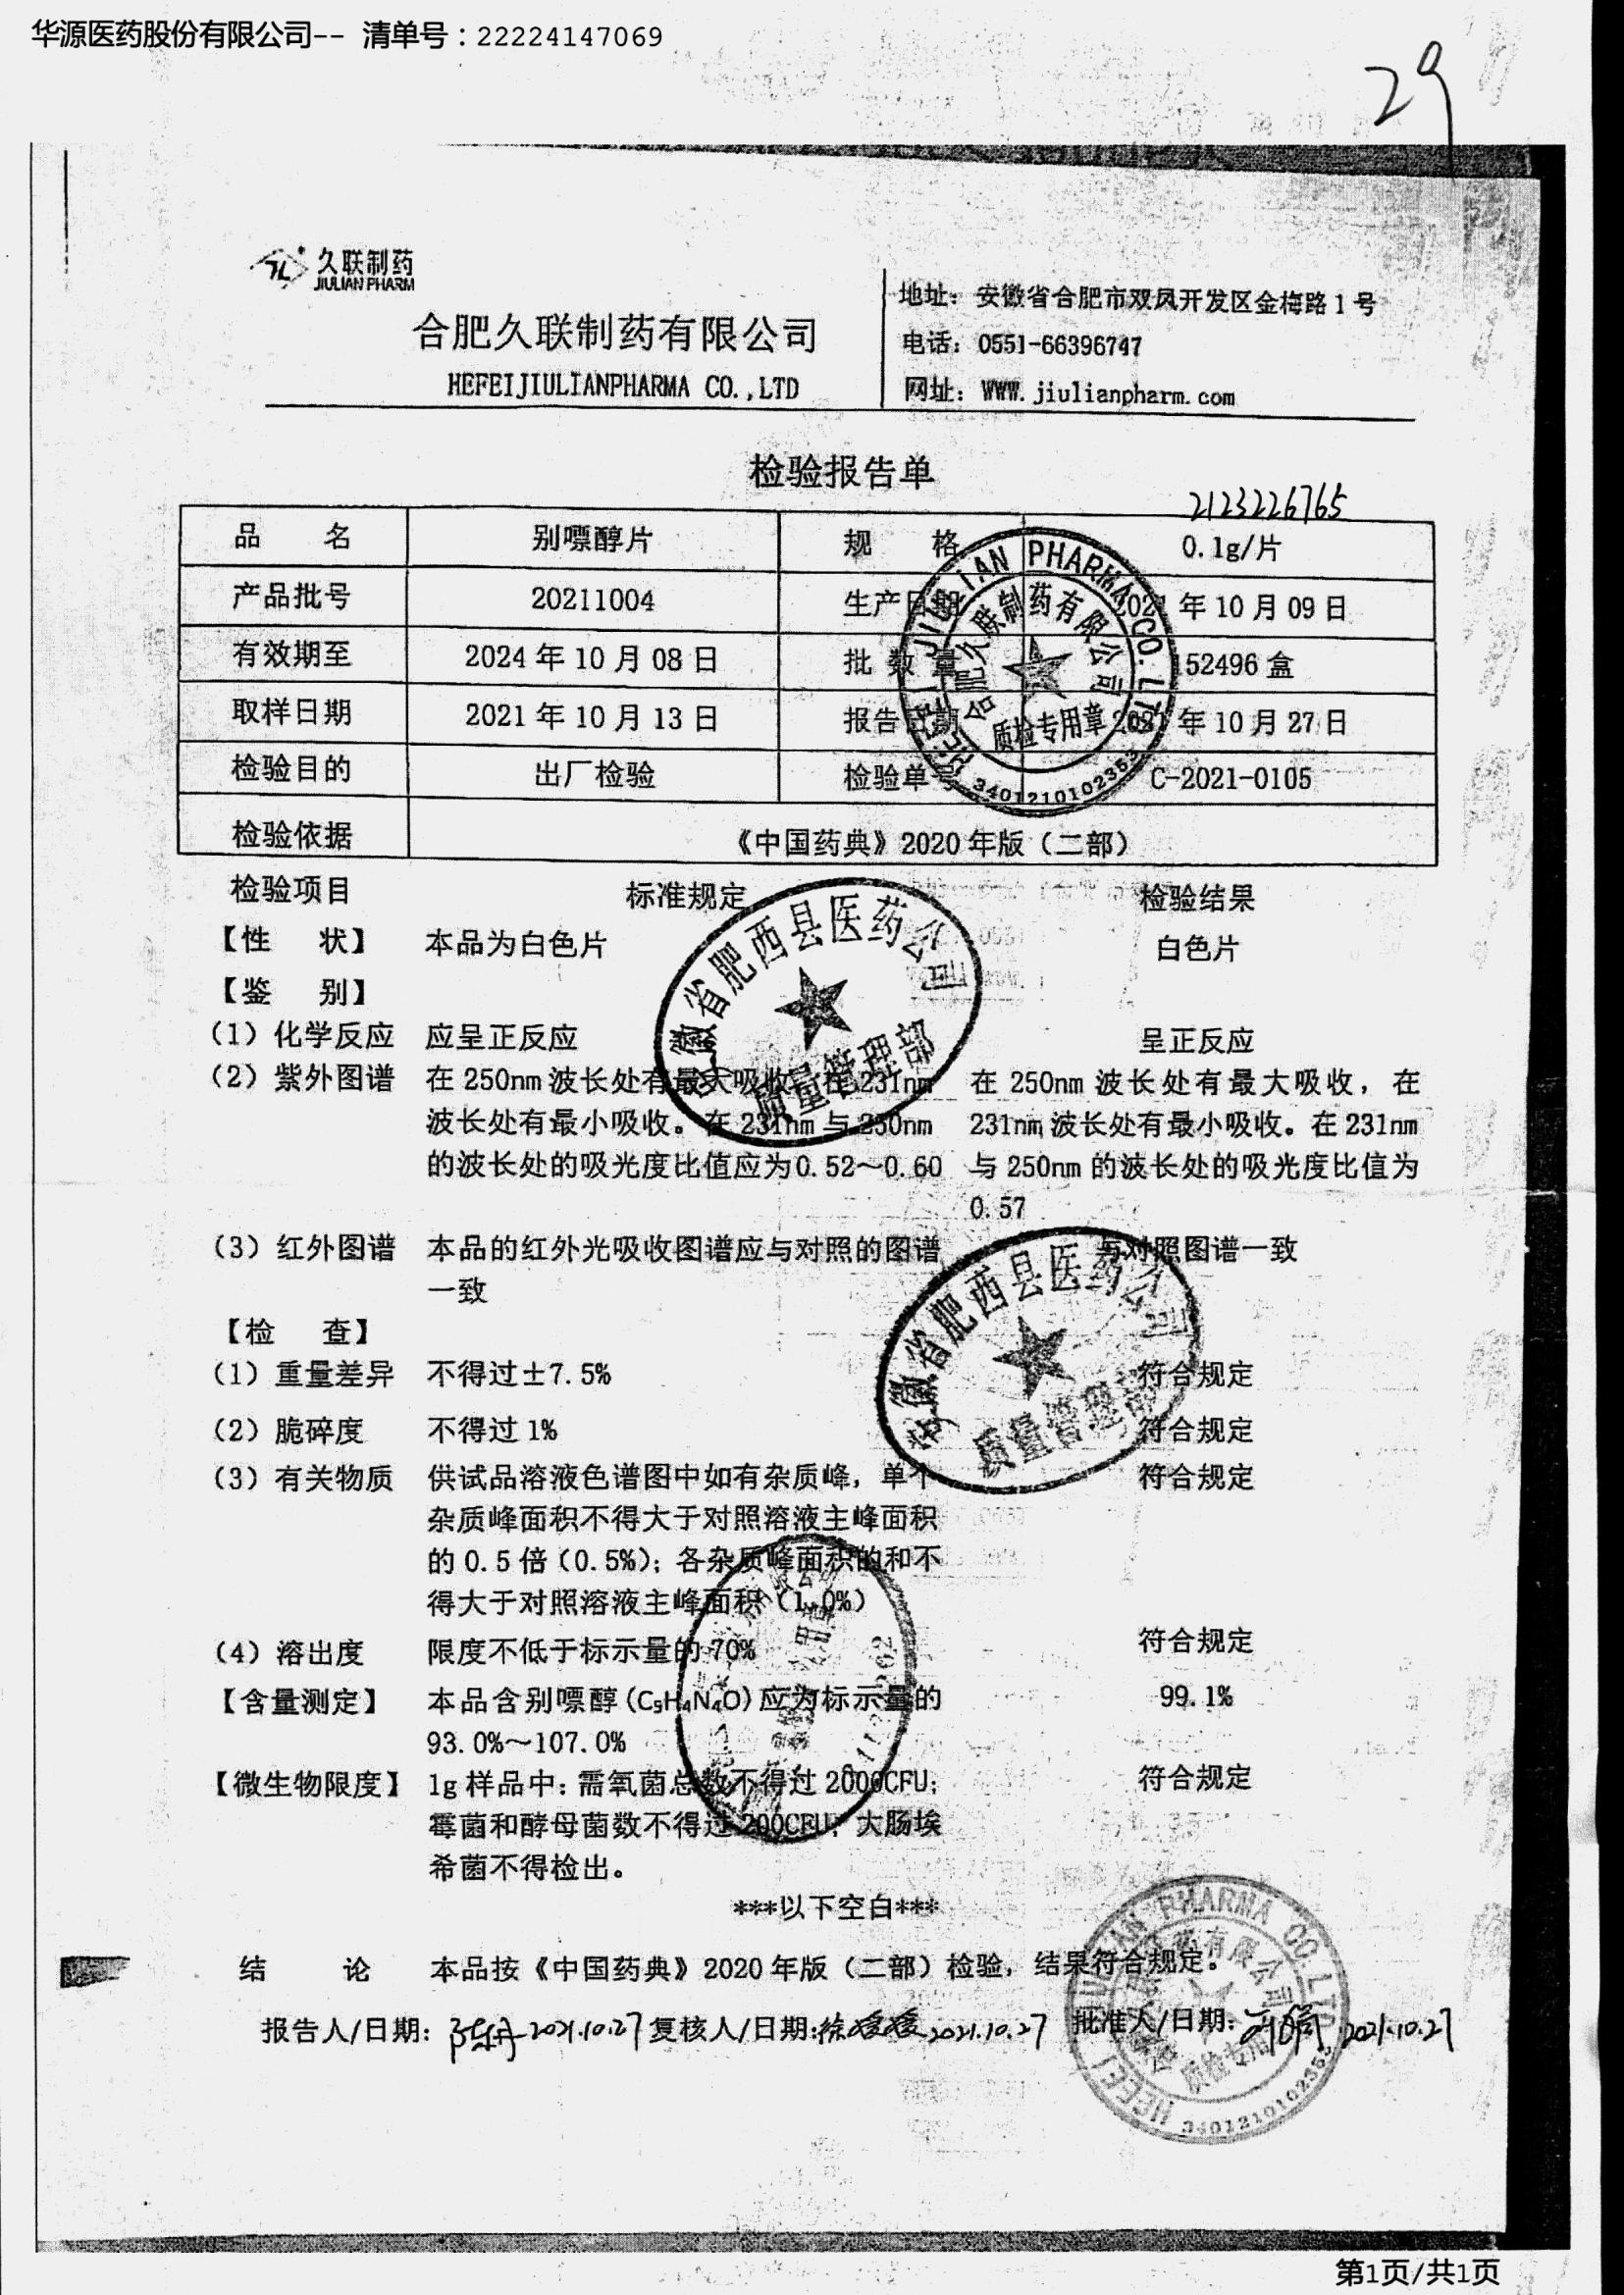 华源医药股份有限公司-- 清单号：22224147069
29
久联制药
JIULIAN PHARM
合肥久联制药有限公司
HEFEIJIULIANPHARMA CO.,LTD
地址：安徽省合肥市双凤开发区金梅路1号
电话：0551-66396747
网址：WWW.jiulianpharm.com
检验报告单
2123226765
品 名 别嘌醇片 规 格 0.1g/片
产品批号 20211004 生产日期 2021年10月09日
有效期至 2024年10月08日 批数量 152496盒
取样日期 2021年10月13日 报告日期 2021年10月27日
检验目的 出厂检验 检验单号 C-2021-0105
检验依据 《中国药典》2020年版（二部）
HEFEI JIULIAN PHARMA CO. LTD
合肥久联制药有限公司
质检专用章
3401210102353
检验项目 标准规定 检验结果
【性 状】 本品为白色片 白色片
【鉴 别】
（1）化学反应 应呈正反应 呈正反应
（2）紫外图谱 在250nm波长处有最大吸收，在231nm 在250nm波长处有最大吸收，在
波长处有最小吸收。在231nm与250nm 231nm波长处有最小吸收。在231nm
的波长处的吸光度比值应为0.52～0.60 与250nm的波长处的吸光度比值为
0.57
安徽省肥西县医药公司
质量管理部
（3）红外图谱 本品的红外光吸收图谱应与对照的图谱 与对照图谱一致
一致
【检 查】
（1）重量差异 不得过±7.5% 符合规定
（2）脆碎度 不得过1% 符合规定
安徽省肥西县医药公司
质量管理部
（3）有关物质 供试品溶液色谱图中如有杂质峰，单个 符合规定
杂质峰面积不得大于对照溶液主峰面积
的0.5倍（0.5%）；各杂质峰面积的和不
得大于对照溶液主峰面积（1.0%）
（4）溶出度 限度不低于标示量的70% 符合规定
【含量测定】 本品含别嘌醇(C₅H₄N₄O)应为标示量的 99.1%
93.0%～107.0%
【微生物限度】 1g样品中：需氧菌总数不得过2000CFU； 符合规定
霉菌和酵母菌数不得过200CFU；大肠埃
希菌不得检出。
***以下空白***
结 论 本品按《中国药典》2020年版（二部）检验，结果符合规定。
报告人/日期： 2021.10.27 复核人/日期：徐媛媛 2021.10.27 批准人/日期： 2021.10.27
HEFEI JIULIAN PHARMA CO. LTD
质检专用章
3401210102353
第1页/共1页